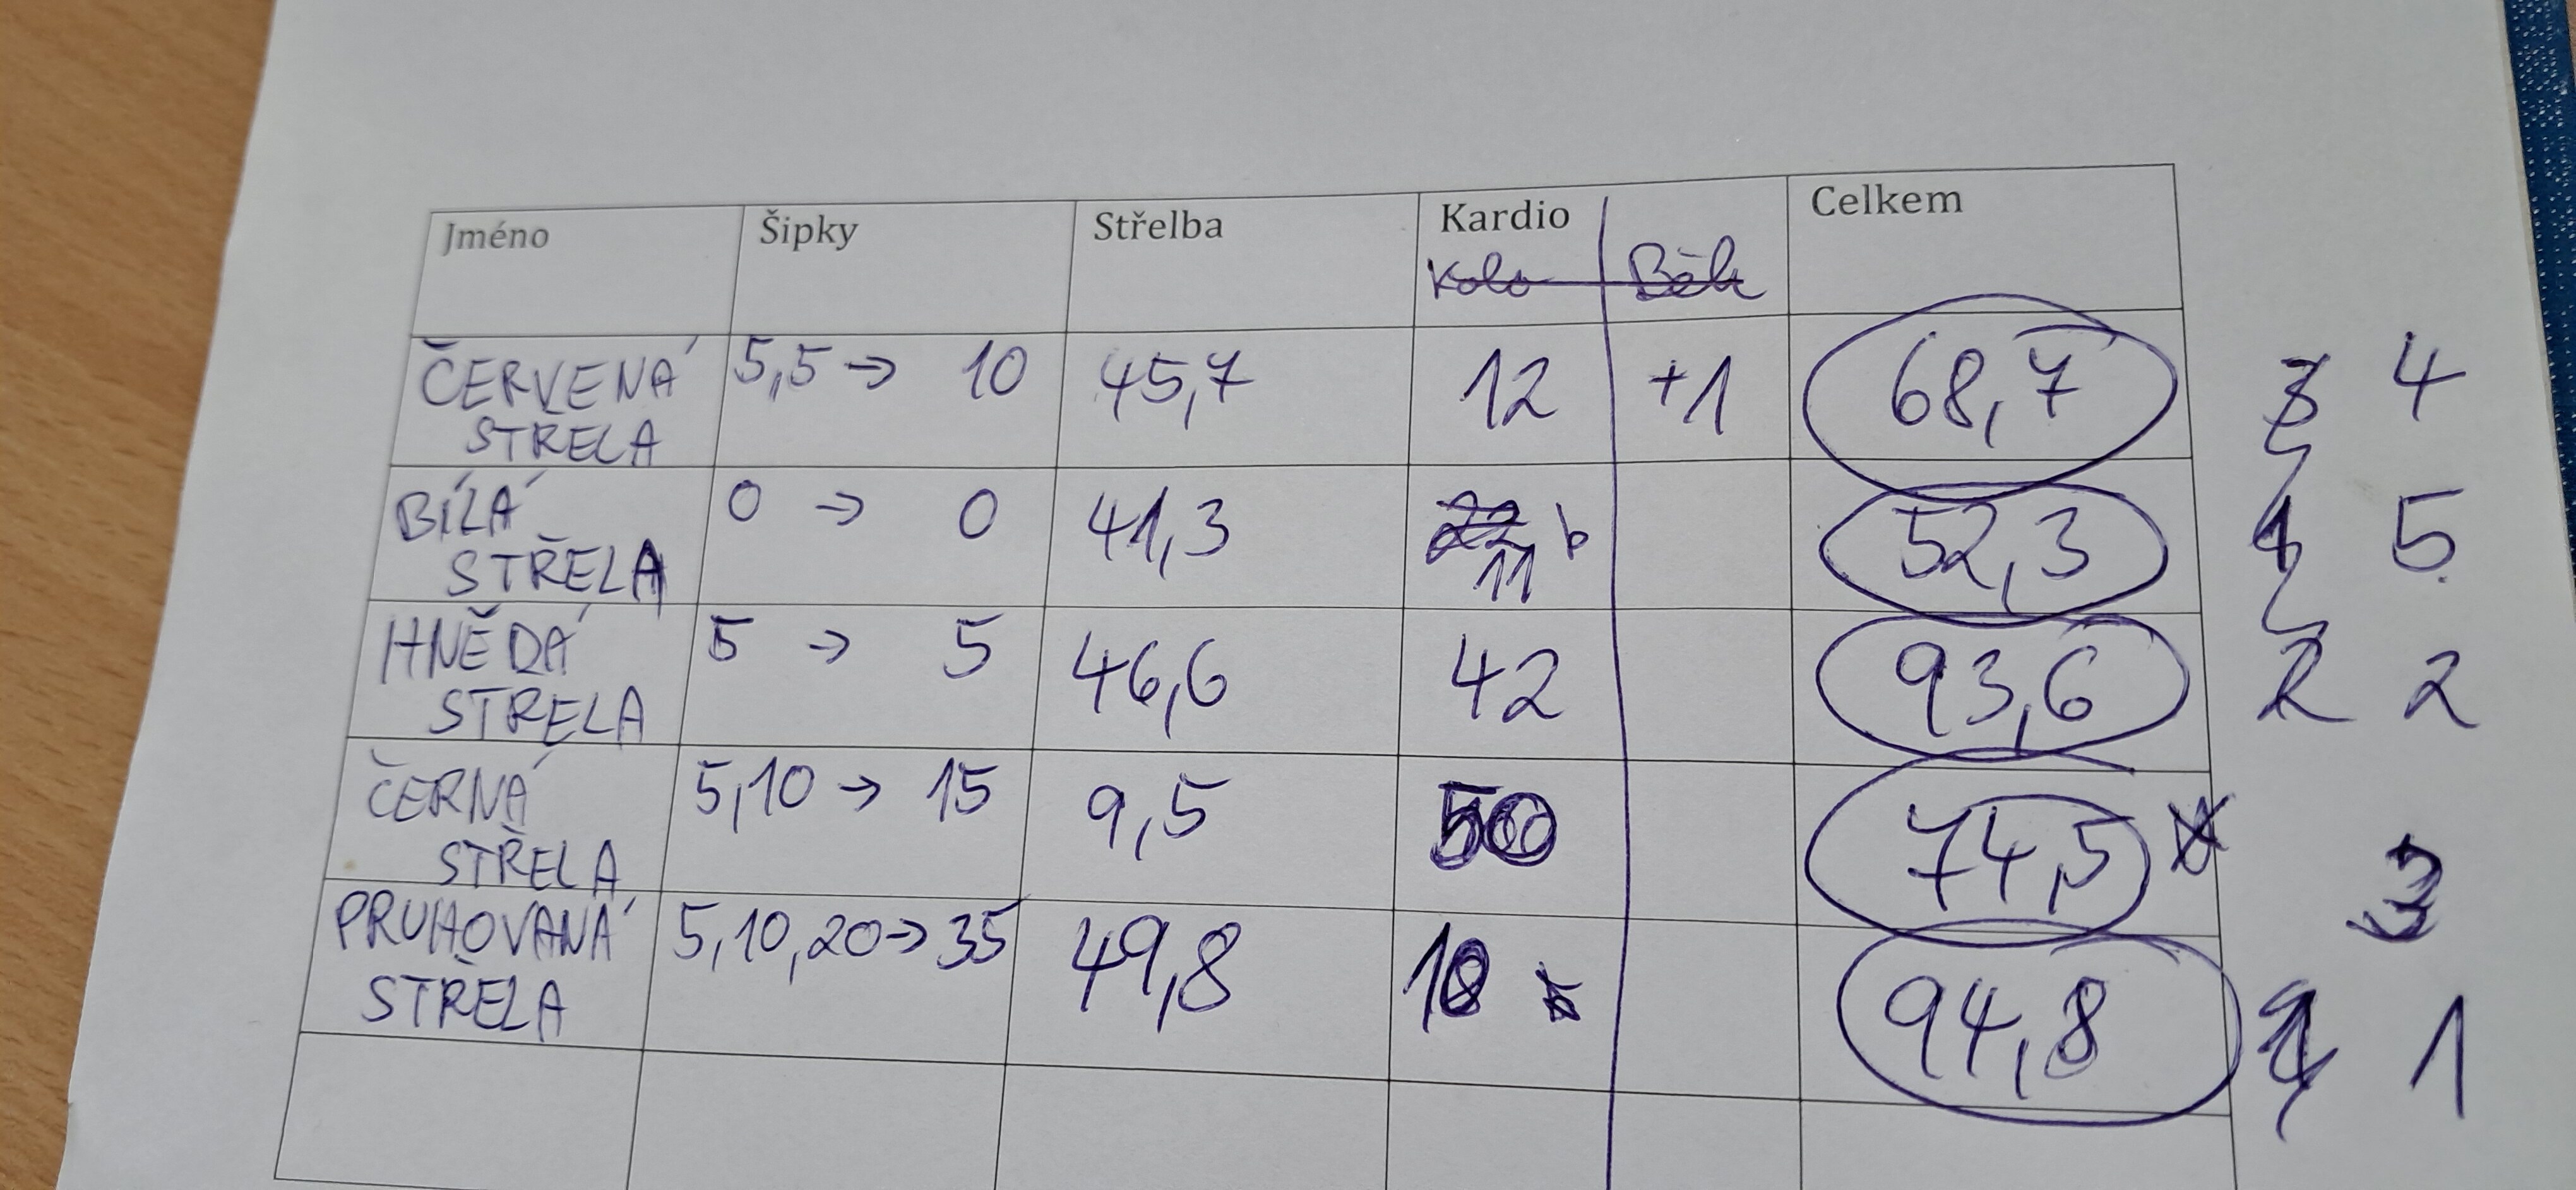 Jméno Šipky Střelba Kardio Celkem
Kolo Běh
ČERVENÁ 5,5 → 10 45,7 12 +1 68,7 4
STŘELA
BÍLÁ 0 → 0 41,3 22 b 52,3 5
STŘELA 11
HNĚDÁ 5 → 5 46,6 42 93,6 2 2
STŘELA
ČERNÁ 5,10 → 15 9,5 50 74,5 3
STŘELA
PRUHOVANÁ 5,10,20 → 35 49,8 10 94,8 1
STŘELA